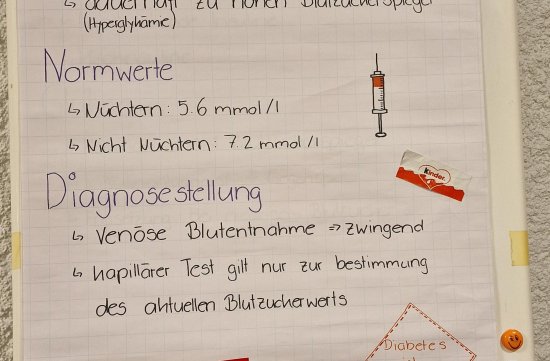 ↳ dauerhaft zu hohen Blutzuckerspiegel
(Hyperglykämie)
Normwerte
↳ Nüchtern: 5.6 mmol/l
↳ Nicht Nüchtern: 7.2 mmol/l
Kinder
Diagnosestellung
↳ Venöse Blutentnahme => zwingend
↳ kapillärer Test gilt nur zur bestimmung
des aktuellen Blutzuckerwerts
Diabetes